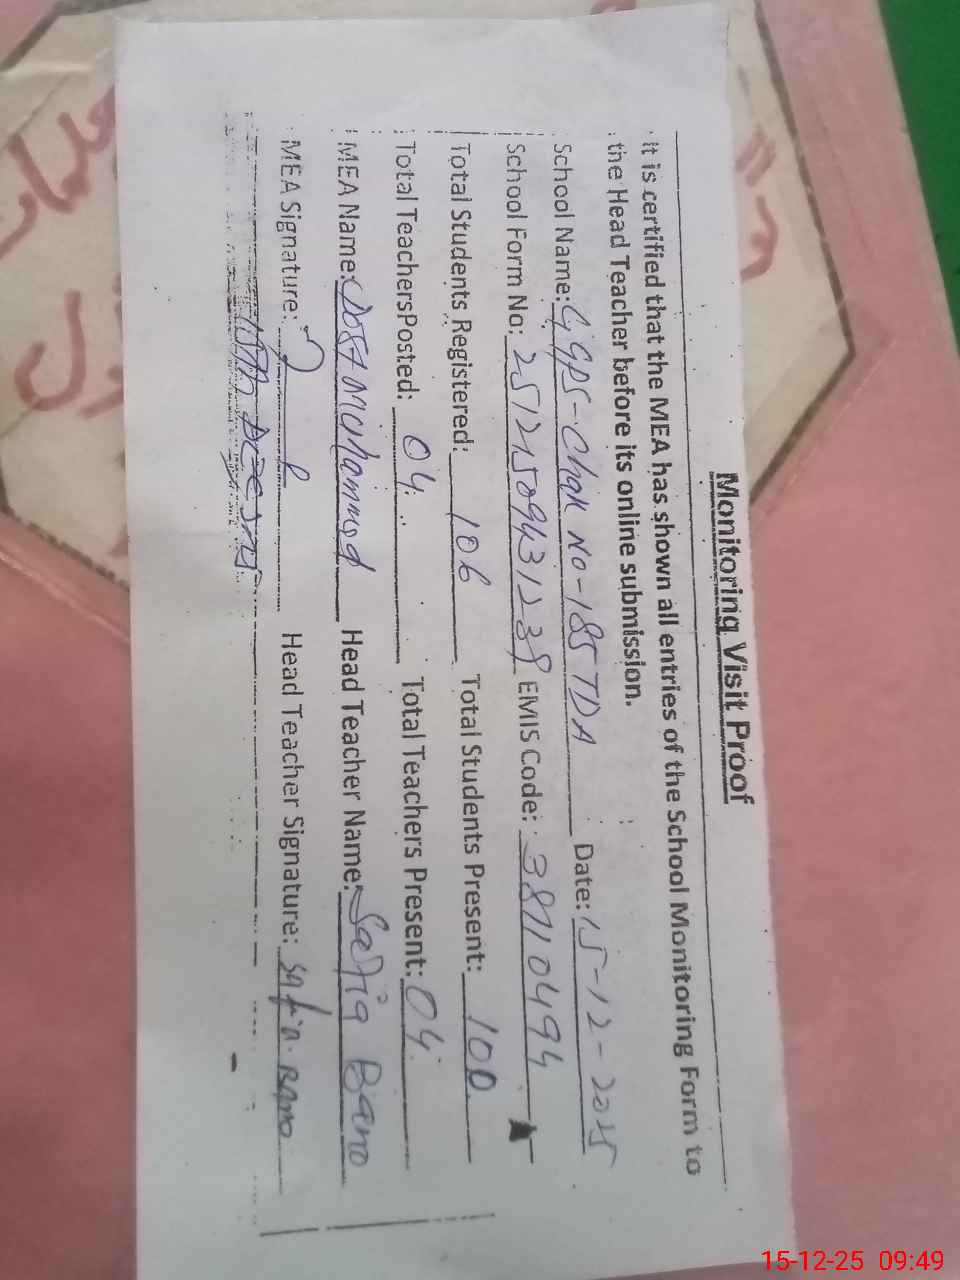 Monitoring Visit Proof
It is certified that the MEA has shown all entries of the School Monitoring Form to
the Head Teacher before its online submission.
School Name: GGPS-Chak No-185 TDA Date: 15-12-2025
School Form No: EMIS Code: 38710494
Total Students Registered: 106 Total Students Present: 100
Total TeachersPosted: 04 Total Teachers Present: 04
MEA Name: Dost Muhammad Head Teacher Name: Safia Bano
MEA Signature: Head Teacher Signature: Safia Bano
15-12-25 09:49